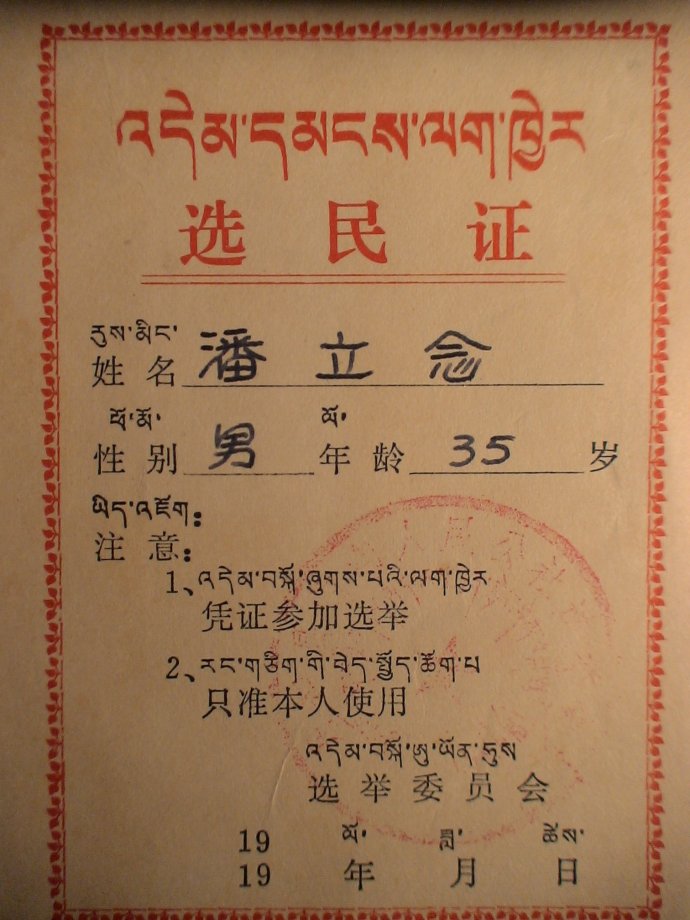 འདེམ་དམངས་ལག་ཁྱེར
选民证
རུས་མིང་
姓名 潘立念
ཕོ་མོ་ ལོ་
性别 男 年龄 35 岁
ཡིད་འཇོག:
注意:
1、འདེམ་བསྐོ་ཞུགས་པའི་ལག་ཁྱེར
凭证参加选举
2、རང་གཅིག་གི་བེད་སྤྱོད་ཚོག་པ
只准本人使用
འདེམ་བསྐོ་ཨུ་ཡོན་ཧུས
选举委员会
19 ལོ་ ཟླ་ ཚེས་
19 年 月 日